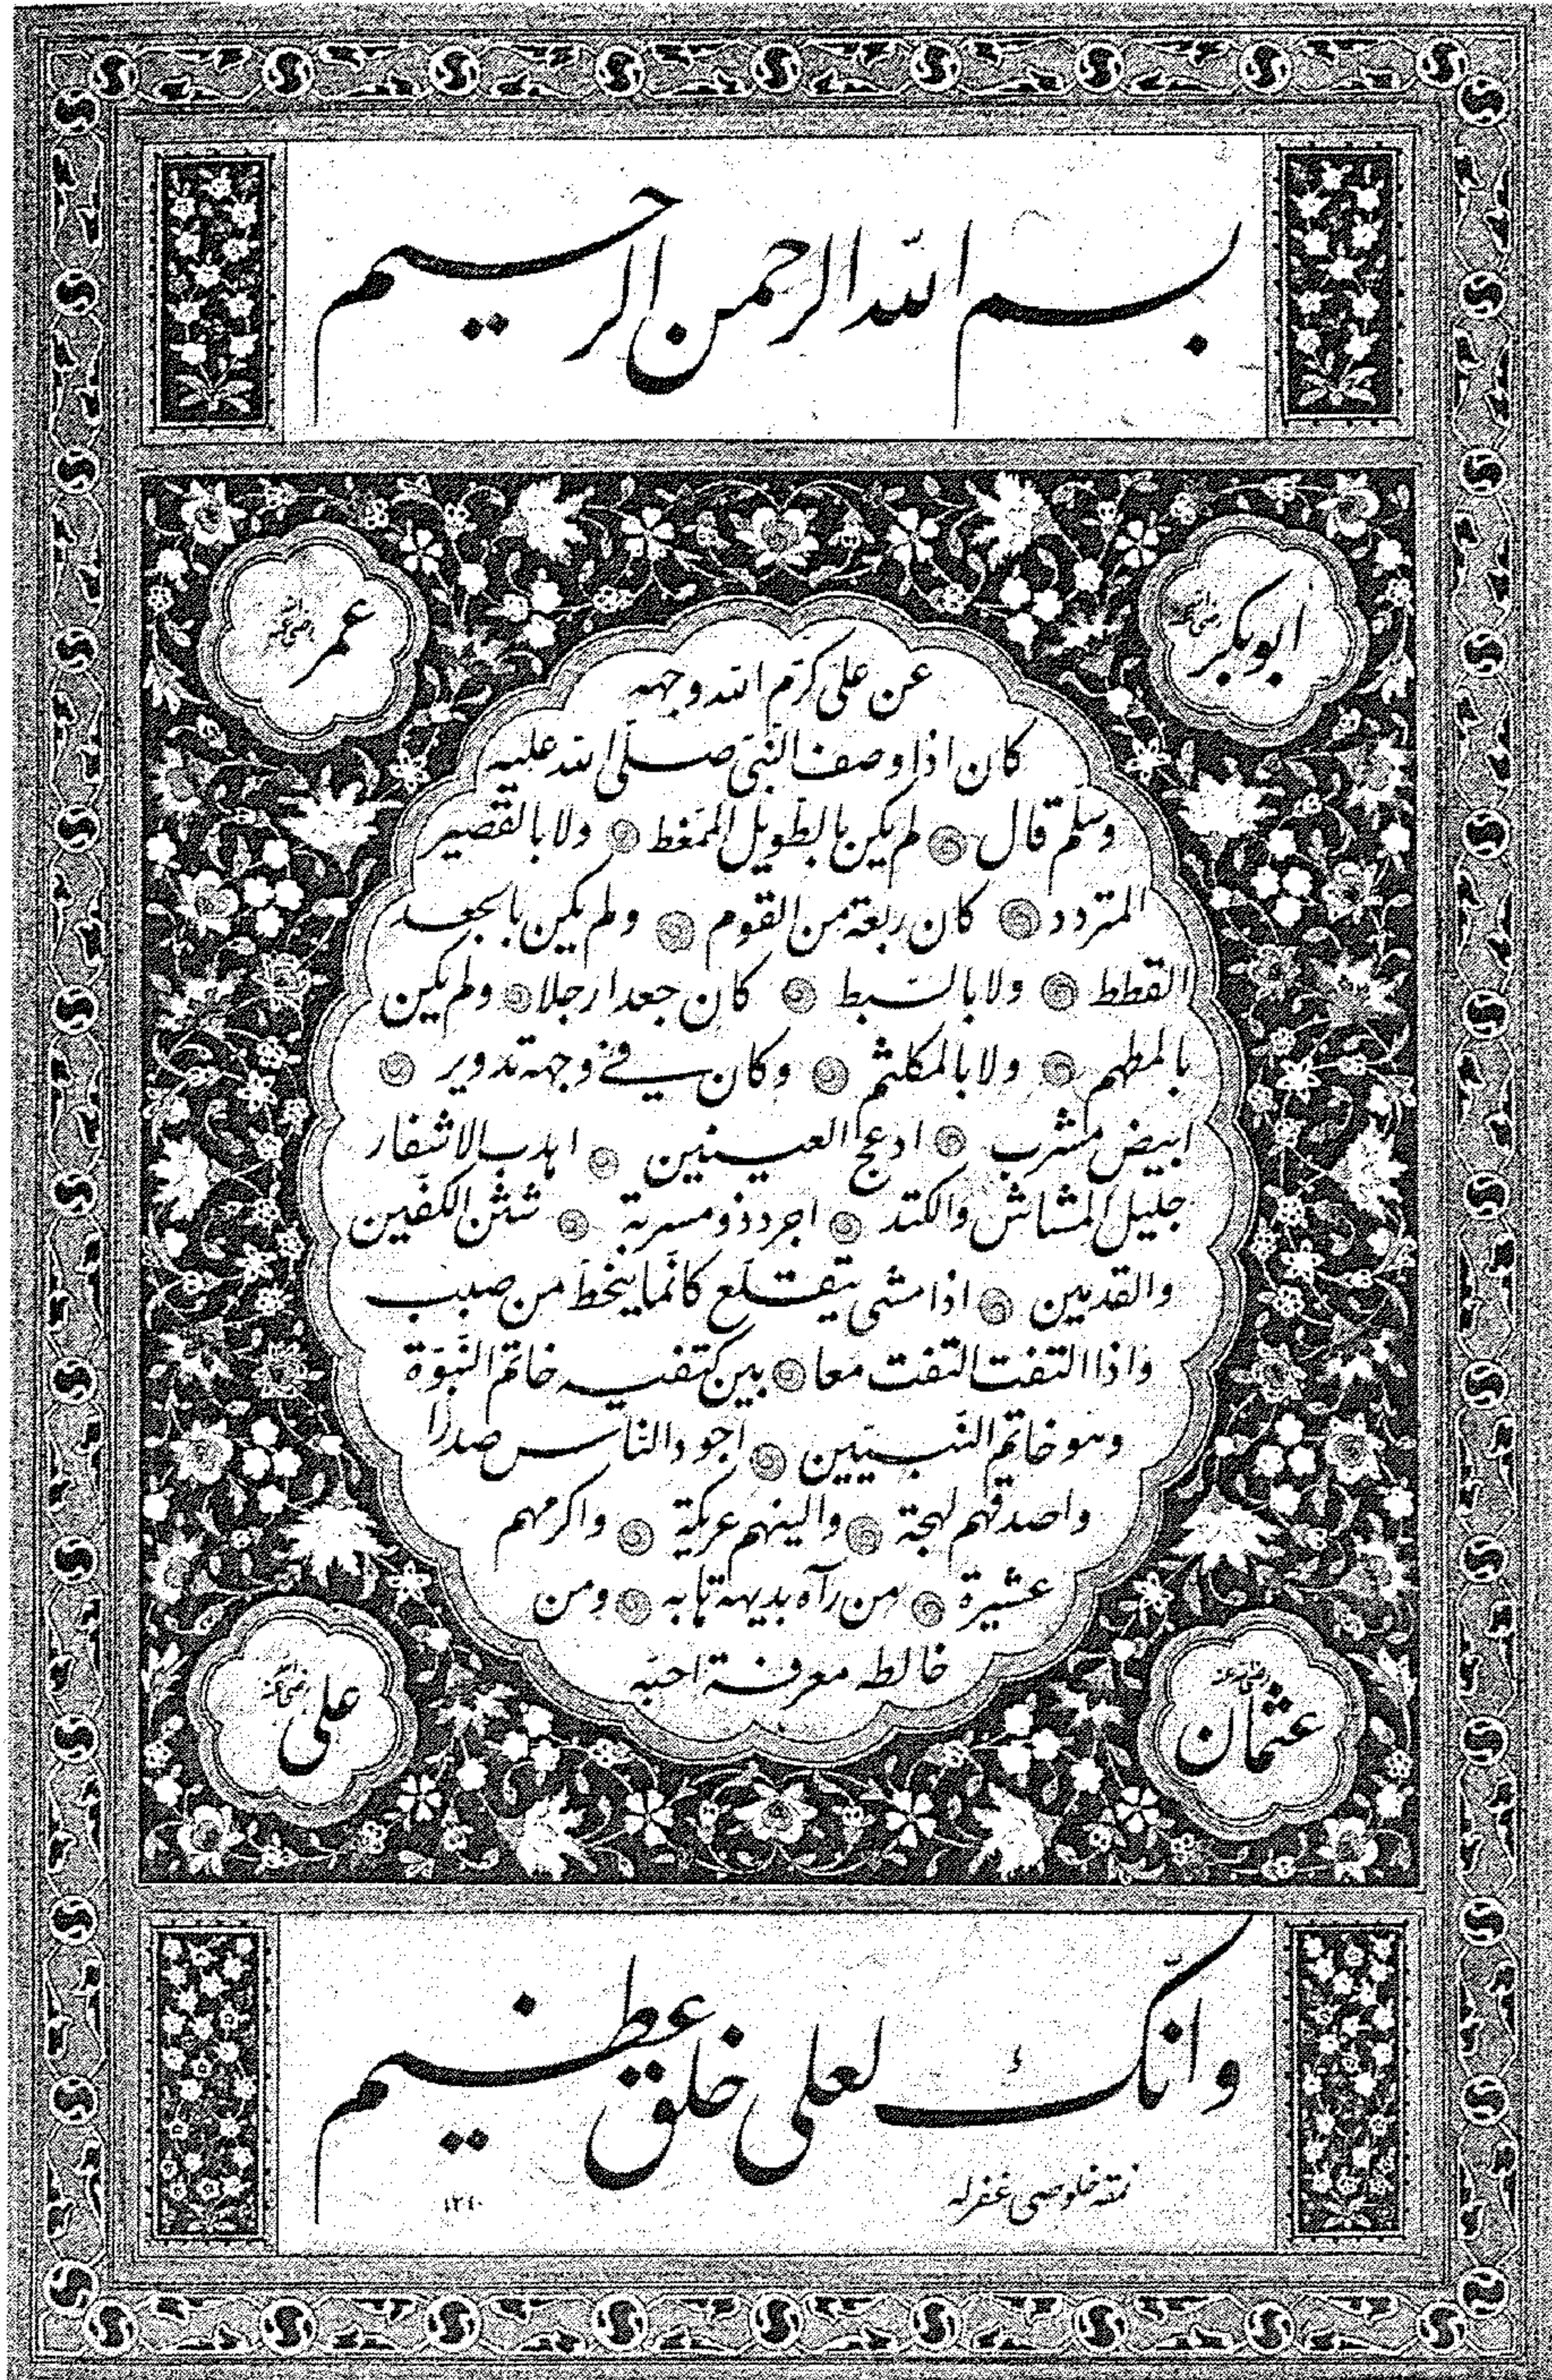 بسم الله الرحمن الرحيم
ابوبكر رضى الله عنه
عمر رضى الله عنه
عن على كرّم الله وجهه
كان اذا وصف النّبىّ صلّى الله عليه
وسلّم قال لم يكن بالطّويل الممّغط ولا بالقصير
المتردد كان ربعة من القوم ولم يكن بالجعد
القطط ولا بالسّبط كان جعدا رجلا ولم يكن
بالمطهم ولا بالمكلثم وكان فى وجهه تدوير
ابيض مشرب ادعج العينين اهدب الاشفار
جليل المشاش والكتد اجرد ذو مسربة شثن الكفّين
والقدمين اذا مشى يتقلّع كانّما ينحط من صبب
واذا التفت التفت معا بين كتفيه خاتم النّبوّة
وهو خاتم النّبيّين اجود النّاس صدرا
واصدقهم لهجة والينهم عريكة واكرمهم
عشيرة من رآه بديهة هابه ومن
خالطه معرفة احبّه
عثمان رضى الله عنه
على رضى الله عنه
وانّك لعلى خلق عظيم
نمقه خلوصى غفرله
١٢٤٠